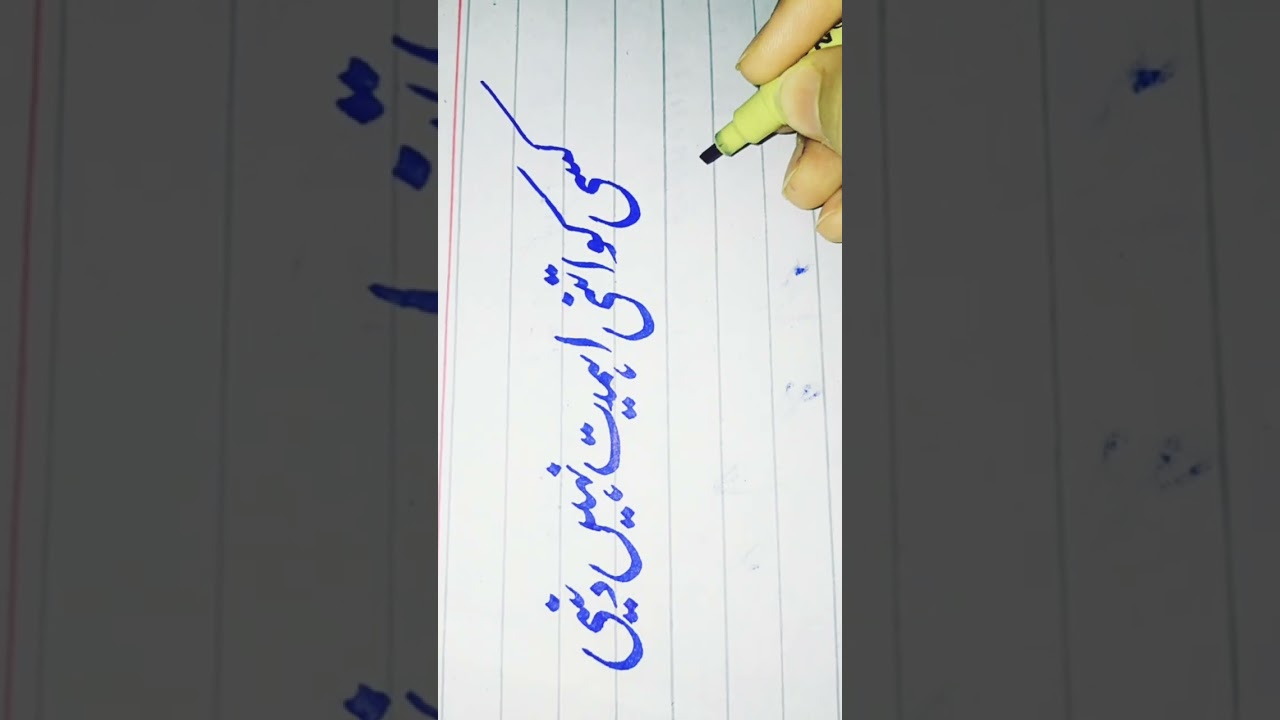 کسی کو اتنی اہمیت نہیں دینی